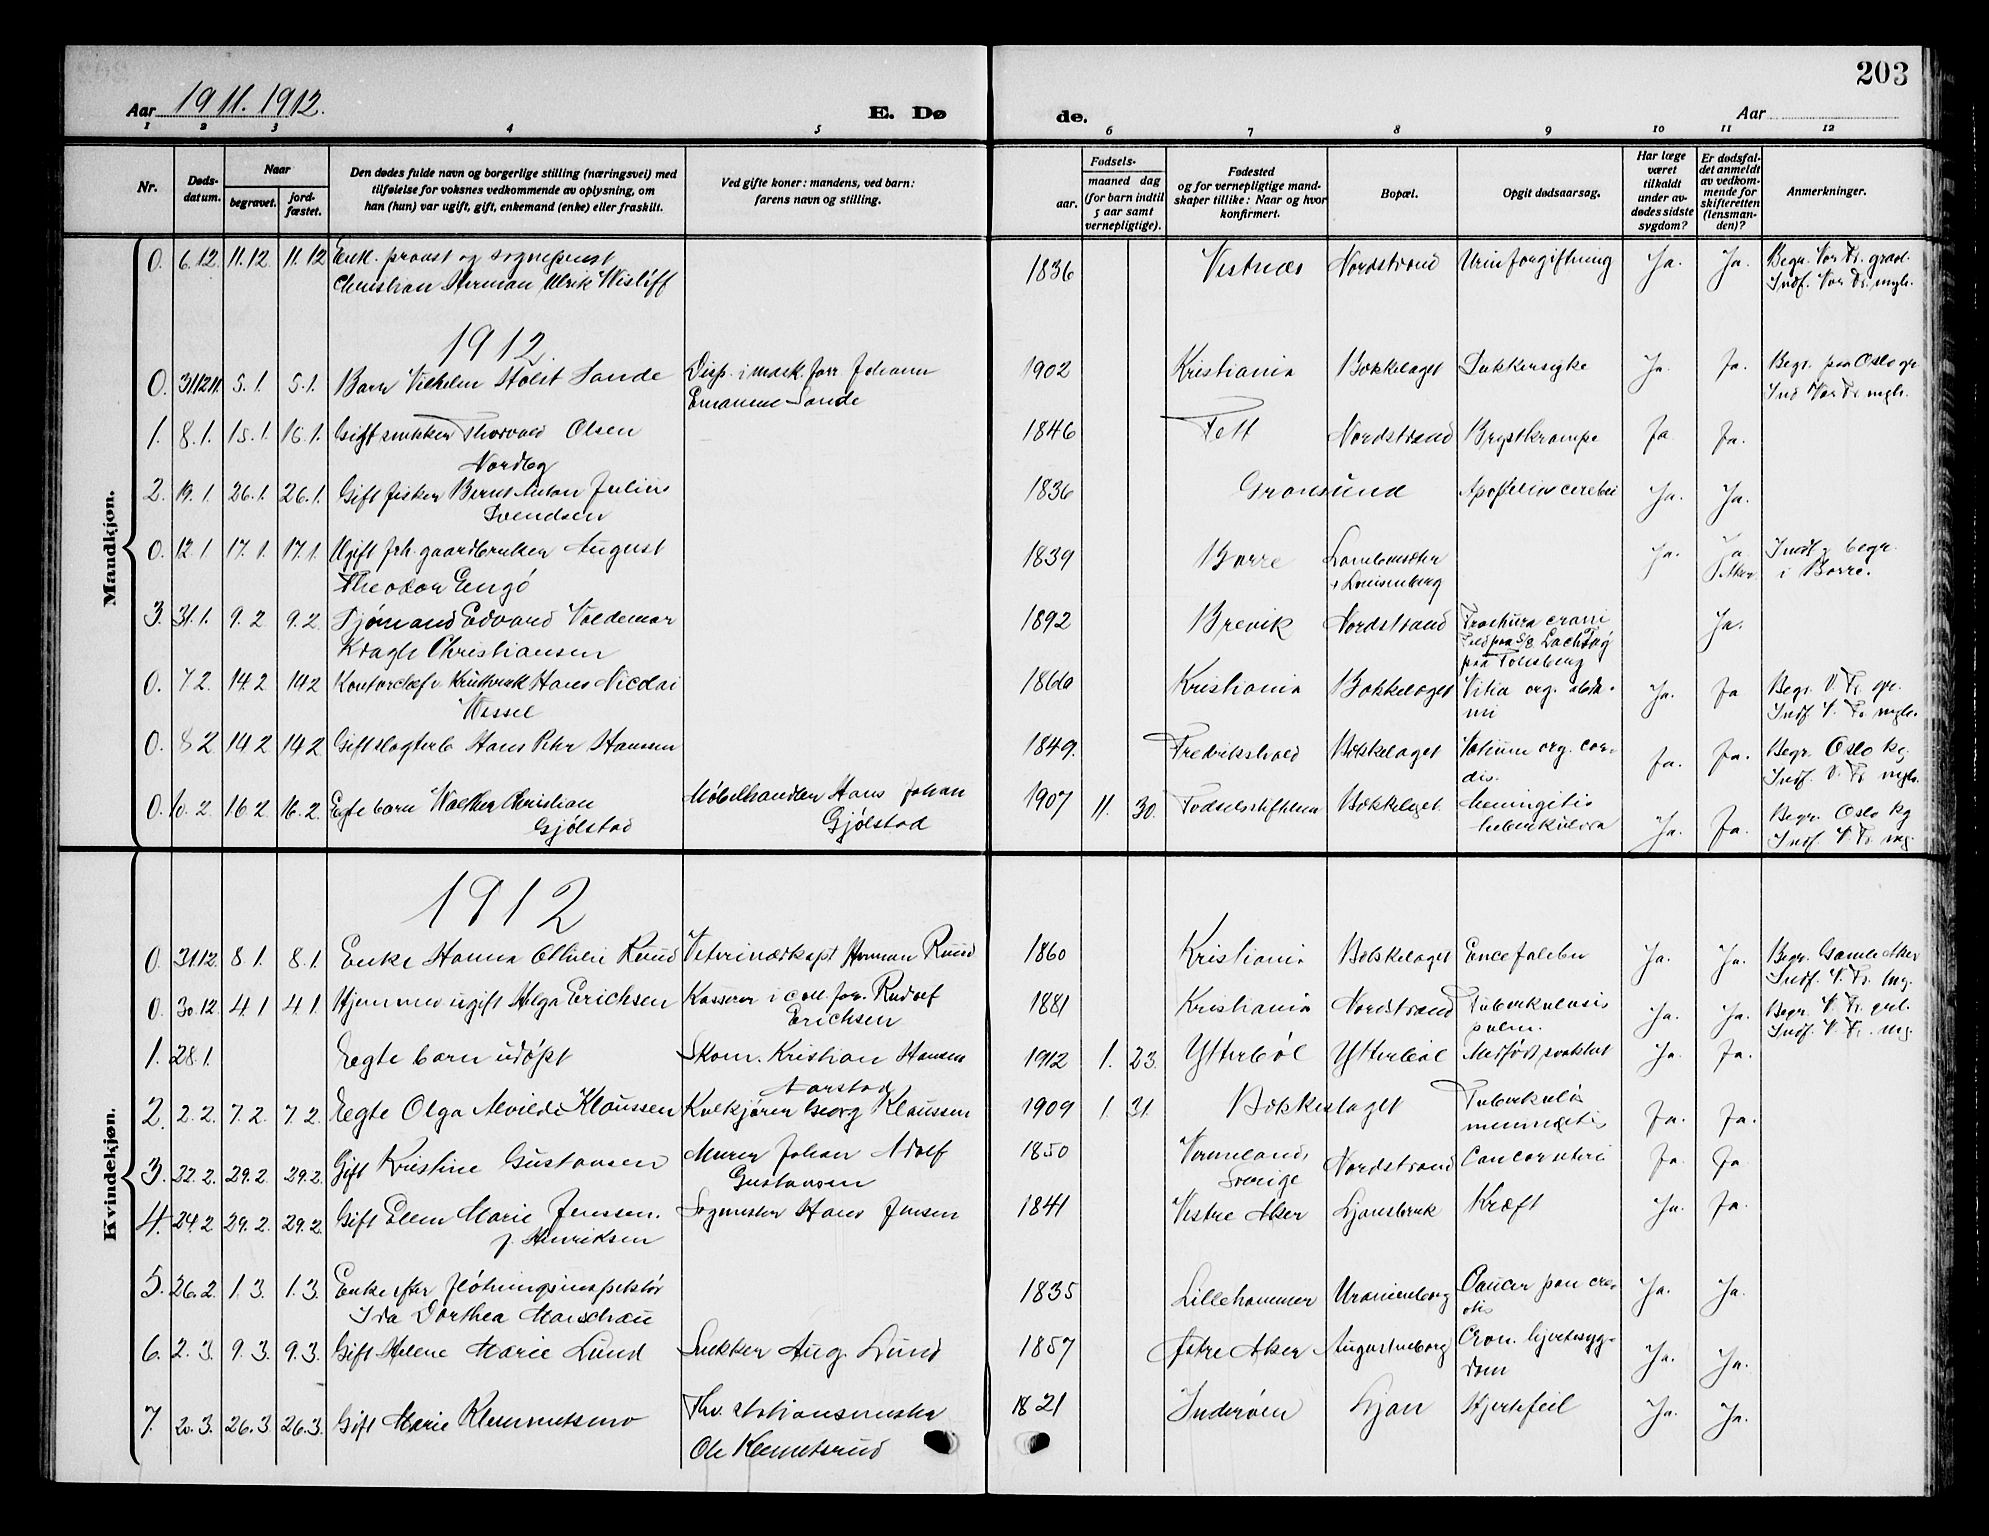 203
Aar 1911. 1912.
E. Dø
de.
Aar
1 2 3 4 5 6 7 8 9 10 11 12
Nr.
Døds-
datum.
Naar
begravet.
jord-
fæstet.
Den dødes fulde navn og borgerlige stilling (næringsvei) med
tilføielse for voksnes vedkommende av oplysning, om
han (hun) var ugift, gift, enkemand (enke) eller fraskilt.
Ved gifte koner: mandens, ved barn:
farens navn og stilling.
Fødsels-
aar.
maaned dag
(for barn indtil
5 aar samt
vernepligtige).
Fødested
og for vernepligtige mand-
skaper tillike: Naar og hvor
konfirmert.
Bopæl.
Opgit dødsaarsag.
Har læge
været
tilkaldt
under av-
dødes sidste
sygdom?
Er dødsfal-
det anmeldt
av vedkom-
mende for
skifteretten
(lensman-
den)?
Anmerkninger.
Mandkjøn.
0. 6.12. 11.12. 11.12 Enk. provst og sogneprest 1836 Vestnes Nordstrand Urinforgiftning Ja. Ja. Begr. Vor Fr. gravl.
Christian Herman Ulrik Wisløff Indf. Vor Fr. mgh.
1912
0. 31.12.11. 5.1. 5.1. Barn Vilhelm Holst Sande Disp. i mask. forr. Johann 1902 Kristiania Bækkelaget Sukkersyke Ja. Ja. Begr. paa Oslo gr.
Emanuel Sande Ind Vor Fr. mgh.
1. 8.1. 15.1. 15.1. Gift snekker Thorvald Olsen 1846 Fett Nordstrand Brystkrampe Ja Ja.
Nordby
2. 19.1. 26.1. 26.1. Gift fisker Bernt Anton Julius 1836 Gronsund Apoplexia cerebri Ja. Ja.
Svendsen
0. 12.1 17.1. 17.1. Ugift fhv. gaardbruker August 1839 Borre Ja. Ja Indf. og begr.
Theodor Engø i Borre.
3. 31.1. 9.2 9.2. Sjømand Edvard Valdemar 1892 Brevik Nordstrand Fractura cranii Ja.
Kragh Christiansen
paa Tønsberg
0. 7.2. 14.2 14.2 Kontorchef Hans Nicolai 1860 Kristiania Bækkelaget Vitia org. abdo- Ja. Ja Begr. V. Fr. gr.
Wessel mi Indf. V. Fr. mgh.
0. 8.2 14.2 14.2 Gift slagter Hans Petr Hansen 1849. Fredrikshald Bækkelaget Vitium org. cor- Ja. Ja. Begr. Oslo kg.
dis. Indf. V. Fr. mgh.
0. 10.2. 16.2 16.2. Egte barn Walther Christian Møbelhandler Hans Johan 1907 11. 30. Fødselsstiftelsen Bækkelaget Meningitis Ja. Ja. Begr. Oslo kg
Gjølstad Gjølstad tuberkulosa Indf. V. Fr. mg.
Kvindekjøn.
1912
0. 31.12. 8.1. 8.1. Enke Hanna Ottilie Ruud Veterinærkapt Herman Ruud 1860 Kristiania Bækkelaget Ja. Ja. Begr. Gamle Aker
Indf. V. Fr. mg.
0. 30.12 4.1 4.1. Hjemmev. ugift Helga Erichsen Kasserer i coll. forr. Rudolf 1881 Kristiania Nordstrand Tuberkulosis Ja. Ja. Begr. V. Fr. grl.
Erichsen pulm. Indf. V. Fr. mg.
1. 28.1. Egte barn udøpt Skom. Kristian Hansen 1912 1. 23. Ytterbøl Ytterbøl Medfødt svakhet Ja. Ja.
Aarstad
2. 2.2. 7.2. 7.2. Egte Olga Alvilde Klaussen Kulkjører Georg Klaussen 1909 1. 31. Bækkelaget Tuberkuløs Ja. Ja.
meningitis
3. 22.2. 29.2. 29.2. Gift Kristine Gustavsen Murer Johan Adolf 1850 Vermeland, Nordstrand Cancer uteri Ja. Ja
Gustavsen Sverige
4. 24.2 29.2. 29.2. Gift Ellen Marie Jenssen. Sagmester Hans Jensen 1841 Vestre Aker Ljansbruk Kræft Ja. Ja.
f. Henriksen
5. 26.2. 1.3. 1.3. Enke efter fløtningsinspektør 1835 Lillehammer Uranienborg Cancer pancre- Ja. Ja.
Ida Dorthea Marschau atis
6. 2.3. 9.3. 9.3. Gift Helene Marie Lund Snekker Aug. Lund 1857 Østre Aker Augustenborg Cron. hjertesyg- Ja. Ja.
dom
7. 20.3. 26.3 26.3. Gift Marie Klemmetsrud Fhv. stationsmester 1821 Inderøen Ljan Hjertefeil Ja. Ja.
Ole Klemmetsrud